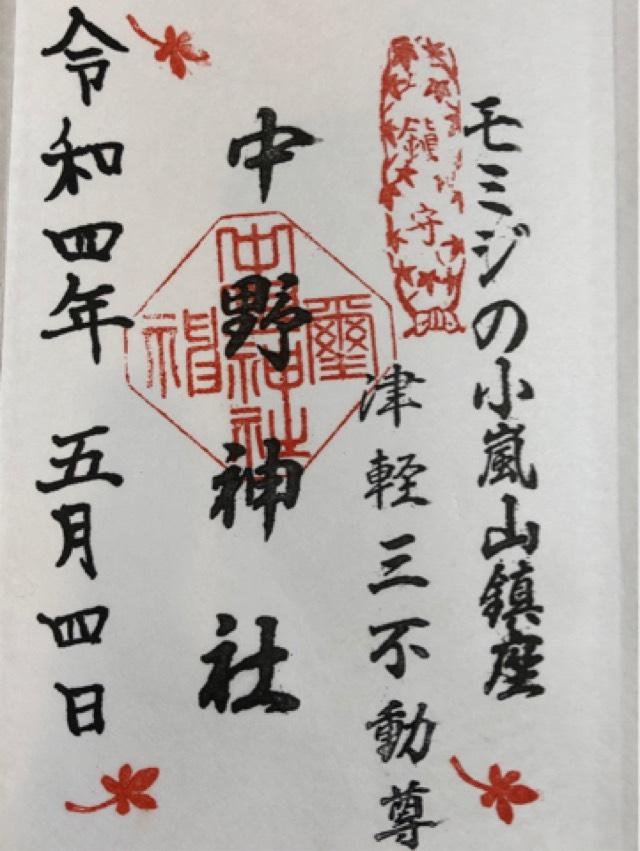 モミジの小嵐山鎮座
鎮守
津軽三不動尊
中野神社
令和四年 五月四日